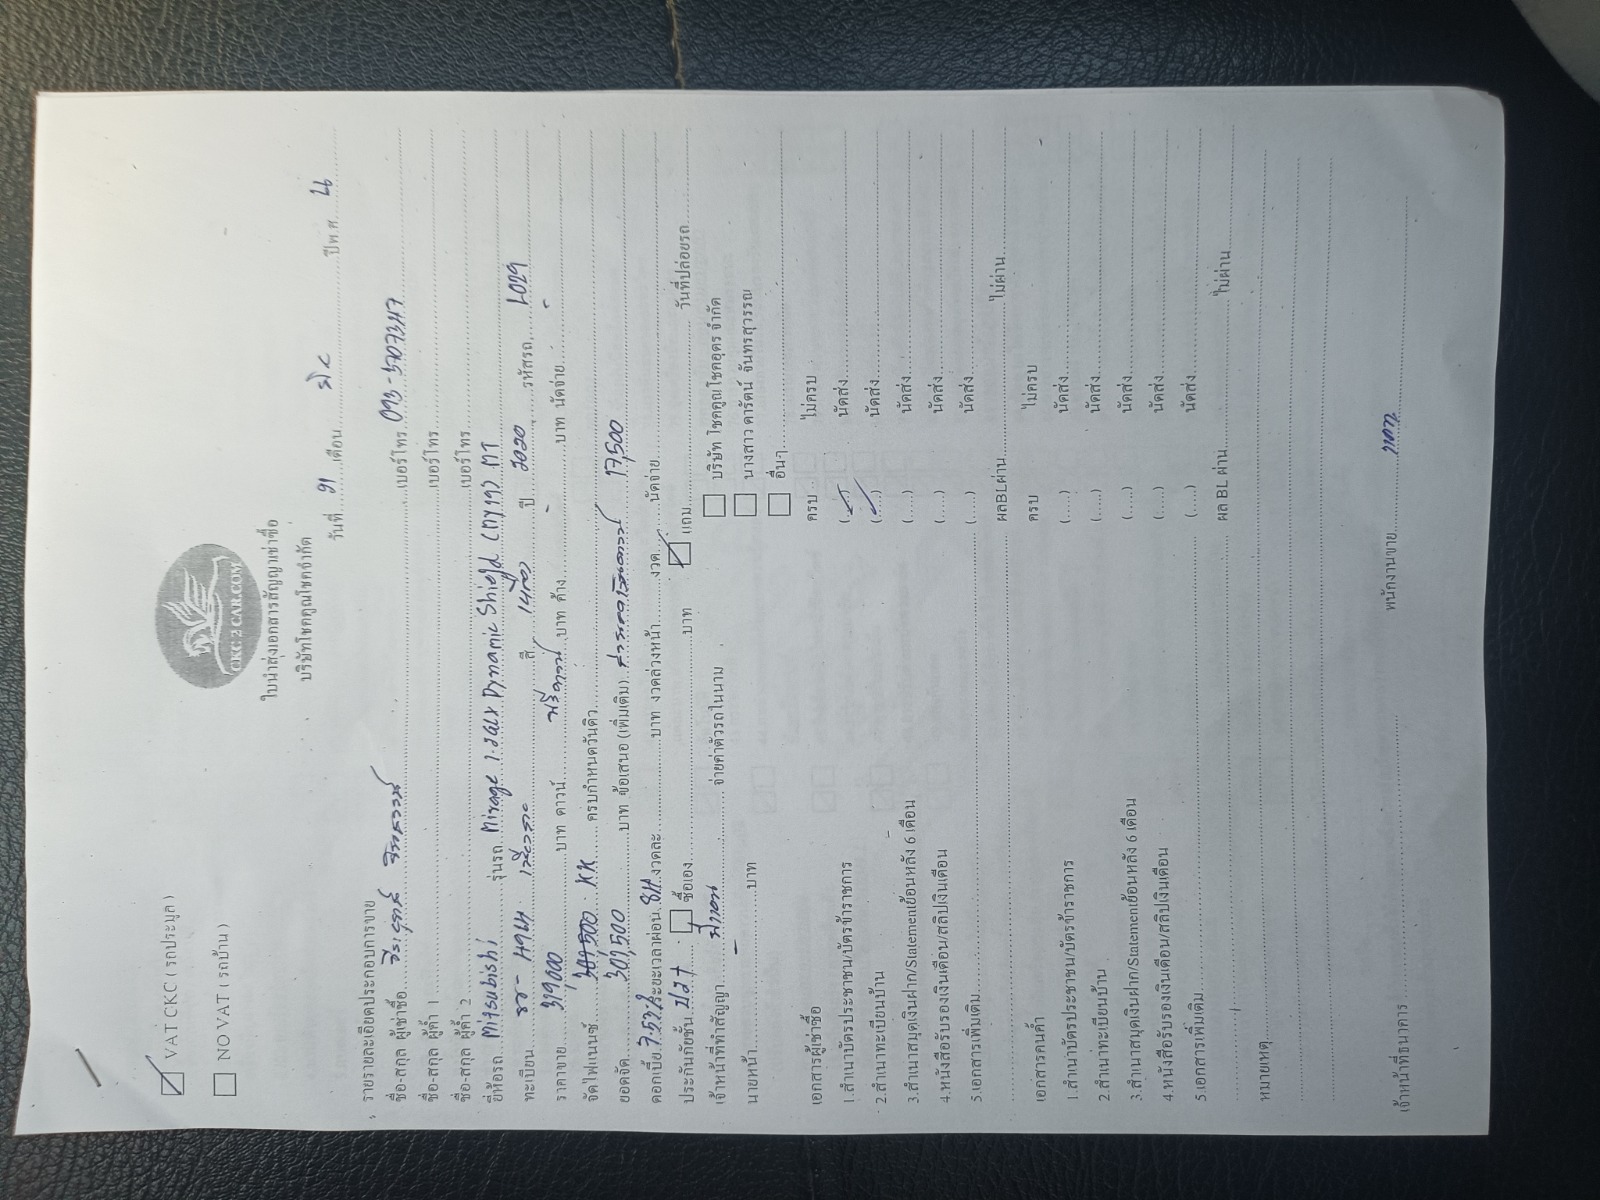 CKC 2 CAR.COM
VAT CKC ( รถประมูล )
NO VAT ( รถบ้าน )
ใบนำส่งเอกสารสัญญาเช่าซื้อ
บริษัทโชคคูณโชคจำกัด
วันที่ 21 เดือน มี.ค ปีพ.ศ.
รายรายละเอียดประกอบการขาย
ชื่อ-สกุล ผู้เช่าซื้อ เบอร์โทร
ชื่อ-สกุล ผู้ค้ำ 1 เบอร์โทร
ชื่อ-สกุล ผู้ค้ำ 2 เบอร์โทร
ยี่ห้อรถ Mitsubishi รุ่นรถ Mirage 1.2GLX Dynamic Shield MT
ทะเบียน สี ปี 2020 รหัสรถ
ราคาขาย 319,000 บาท ดาวน์ ฟรีดาวน์ บาท ค้าง - บาท นัดจ่าย -
จัดไฟแนนซ์ KK ครบกำหนดวันคิว
ยอดจัด 301,500 บาท ข้อเสนอ (เพิ่มเติม) 17,500
ดอกเบี้ย 7.53% ระยะเวลาผ่อน 84 งวดละ บาท งวดล่วงหน้า งวด นัดจ่าย
ประกันภัยชั้น ซื้อเอง บาท แถม วันที่ปล่อยรถ
เจ้าหน้าที่ทำสัญญา จ่ายค่าตัวรถในนาม บริษัท โชคคูณโชคอุดร จำกัด
นายหน้า - บาท นางสาว ดารัตน์ จันทรสุวรรณ
อื่นๆ
เอกสารผู้เช่าซื้อ ครบ ไม่ครบ
1.สำเนาบัตรประชาชน/บัตรข้าราชการ (.....) นัดส่ง
2.สำเนาทะเบียนบ้าน (.....) นัดส่ง
3.สำเนาสมุดเงินฝาก/Statementย้อนหลัง 6 เดือน (.....) นัดส่ง
4.หนังสือรับรองเงินเดือน/สลิปเงินเดือน (.....) นัดส่ง
5.เอกสารเพิ่มเติม (.....) นัดส่ง
ผลBLผ่าน ไม่ผ่าน
เอกสารคนค้ำ ครบ ไม่ครบ
1.สำเนาบัตรประชาชน/บัตรข้าราชการ (.....) นัดส่ง
2.สำเนาทะเบียนบ้าน (.....) นัดส่ง
3.สำเนาสมุดเงินฝาก/Statementย้อนหลัง 6 เดือน (.....) นัดส่ง
4.หนังสือรับรองเงินเดือน/สลิปเงินเดือน (.....) นัดส่ง
5.เอกสารเพิ่มเติม (.....) นัดส่ง
ผล BL ผ่าน ไม่ผ่าน
หมายเหตุ
เจ้าหน้าที่ธนาคาร พนักงานขาย